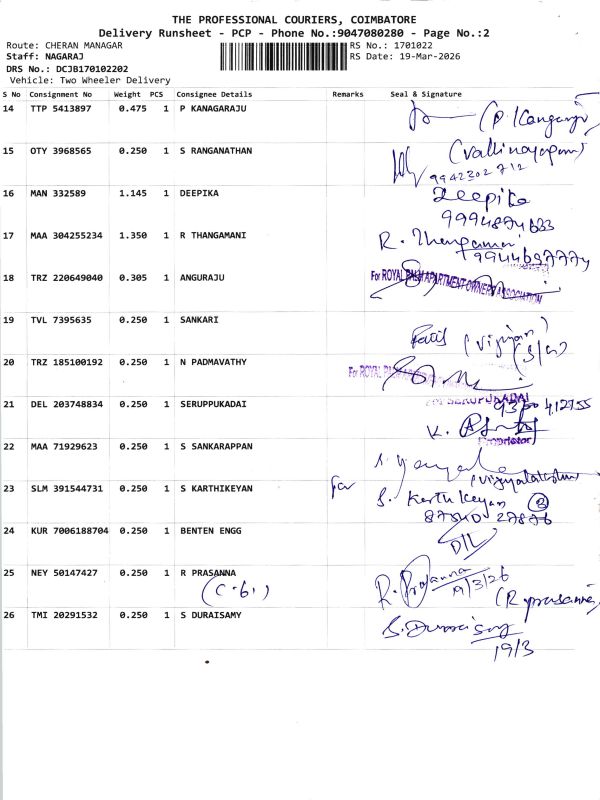 THE PROFESSIONAL COURIERS, COIMBATORE
Delivery Runsheet - PCP - Phone No.:9047080280 - Page No.:2
Route: CHERAN MANAGAR RS No.: 1701022
Staff: NAGARAJ RS Date: 19-Mar-2026
DRS No.: DCJB170102202
Vehicle: Two Wheeler Delivery
S No Consignment No Weight PCS Consignee Details Remarks Seal & Signature
14 TTP 5413897 0.475 1 P KANAGARAJU
15 OTY 3968565 0.250 1 S RANGANATHAN
9942302712
16 MAN 332589 1.145 1 DEEPIKA Deepika
9994894633
17 MAA 304255234 1.350 1 R THANGAMANI R. Thangamani
9944697774
18 TRZ 220649040 0.305 1 ANGURAJU For ROYAL PALM APARTMENT OWNERS ASSOCIATION
19 TVL 7395635 0.250 1 SANKARI
20 TRZ 185100192 0.250 1 N PADMAVATHY For ROYAL
21 DEL 203748834 0.250 1 SERUPPUKADAI For SERUPUKADAI
K.
Proprietor
22 MAA 71929623 0.250 1 S SANKARAPPAN
(Vijayalakshmi)
23 SLM 391544731 0.250 1 S KARTHIKEYAN for S. Karthikeyan
24 KUR 7006188704 0.250 1 BENTEN ENGG
25 NEY 50147427 0.250 1 R PRASANNA R. Prasanna
19/3/26
(R prasanna)
26 TMI 20291532 0.250 1 S DURAISAMY S. Duraisamy
19/3